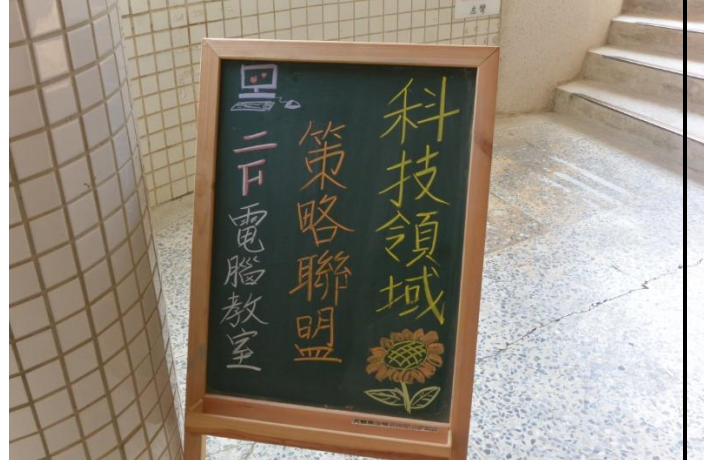 科技領域
策略聯盟
二F電腦教室